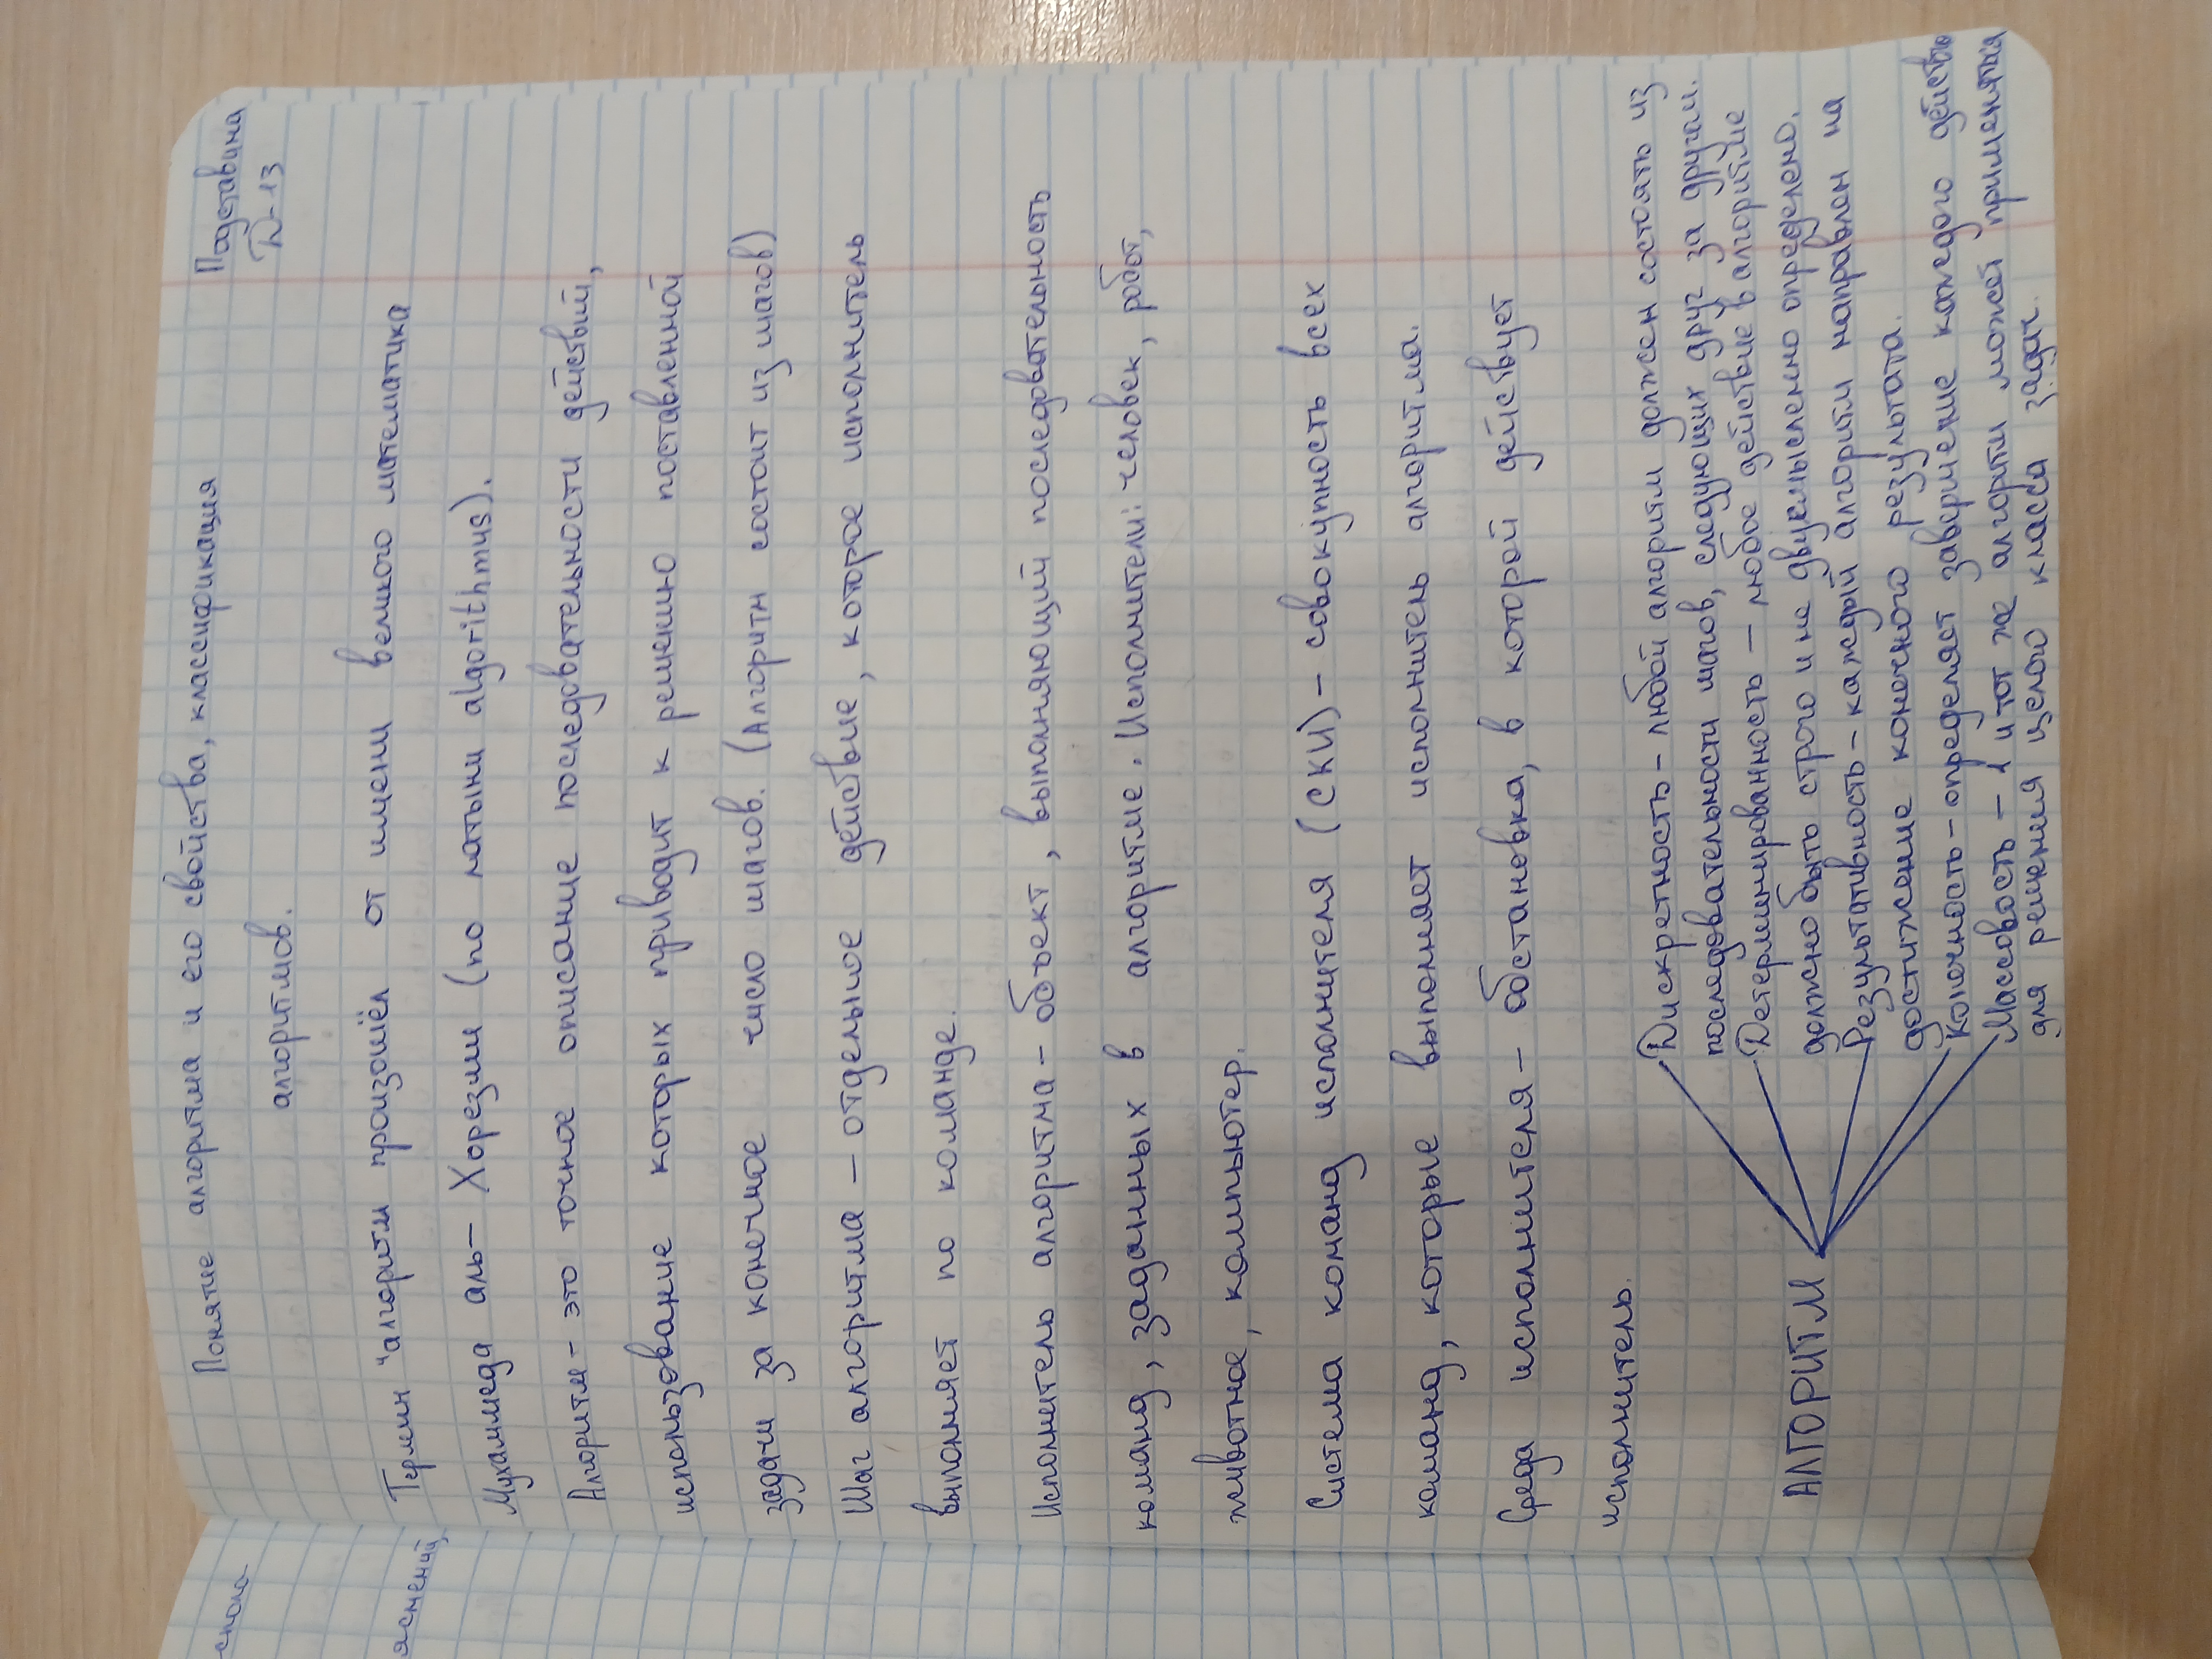 Подставина
Д-13
Понятие алгоритма и его свойства, классификация
алгоритмов.
Термин "алгоритм произошёл от имени великого математика
Мухаммеда аль-Хорезми (по латыни algorithmus).
Алгоритм - это точное описание последовательности действий,
использование которых приводит к решению поставленной
задачи за конечное число шагов. (Алгоритм состоит из шагов)
Шаг алгоритма - отдельное действие, которое исполнитель
выполняет по команде.
Исполнитель алгоритма - объект, выполняющий последовательность
команд, заданных в алгоритме. Исполнители: человек, робот,
животное, компьютер.
Система команд исполнителя (СКИ) - совокупность всех
команд, которые выполняет исполнитель алгоритма.
Среда исполнителя - обстановка, в которой действует
исполнитель.
АЛГОРИТМ
Дискретность - любой алгоритм должен состоять из
последовательности шагов, следующих друг за другом.
Детерминированность - любое действие в алгоритме
должно быть строго и не двусмысленно определено.
Результативность - каждый алгоритм направлен на
достижение конечного результата.
Конечность - определяет завершение каждого действ
Массовость - 1 и тот же алгоритм может применяться
для решения целого класса задач.